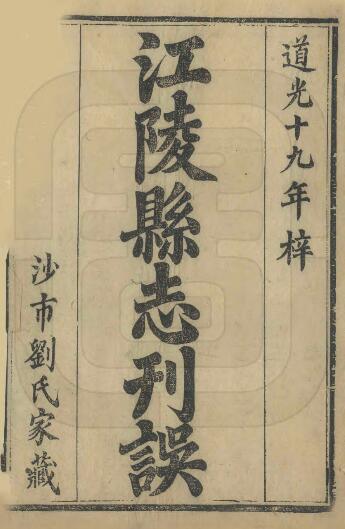 道光十九年梓
江陵縣志刊誤
沙市劉氏家藏